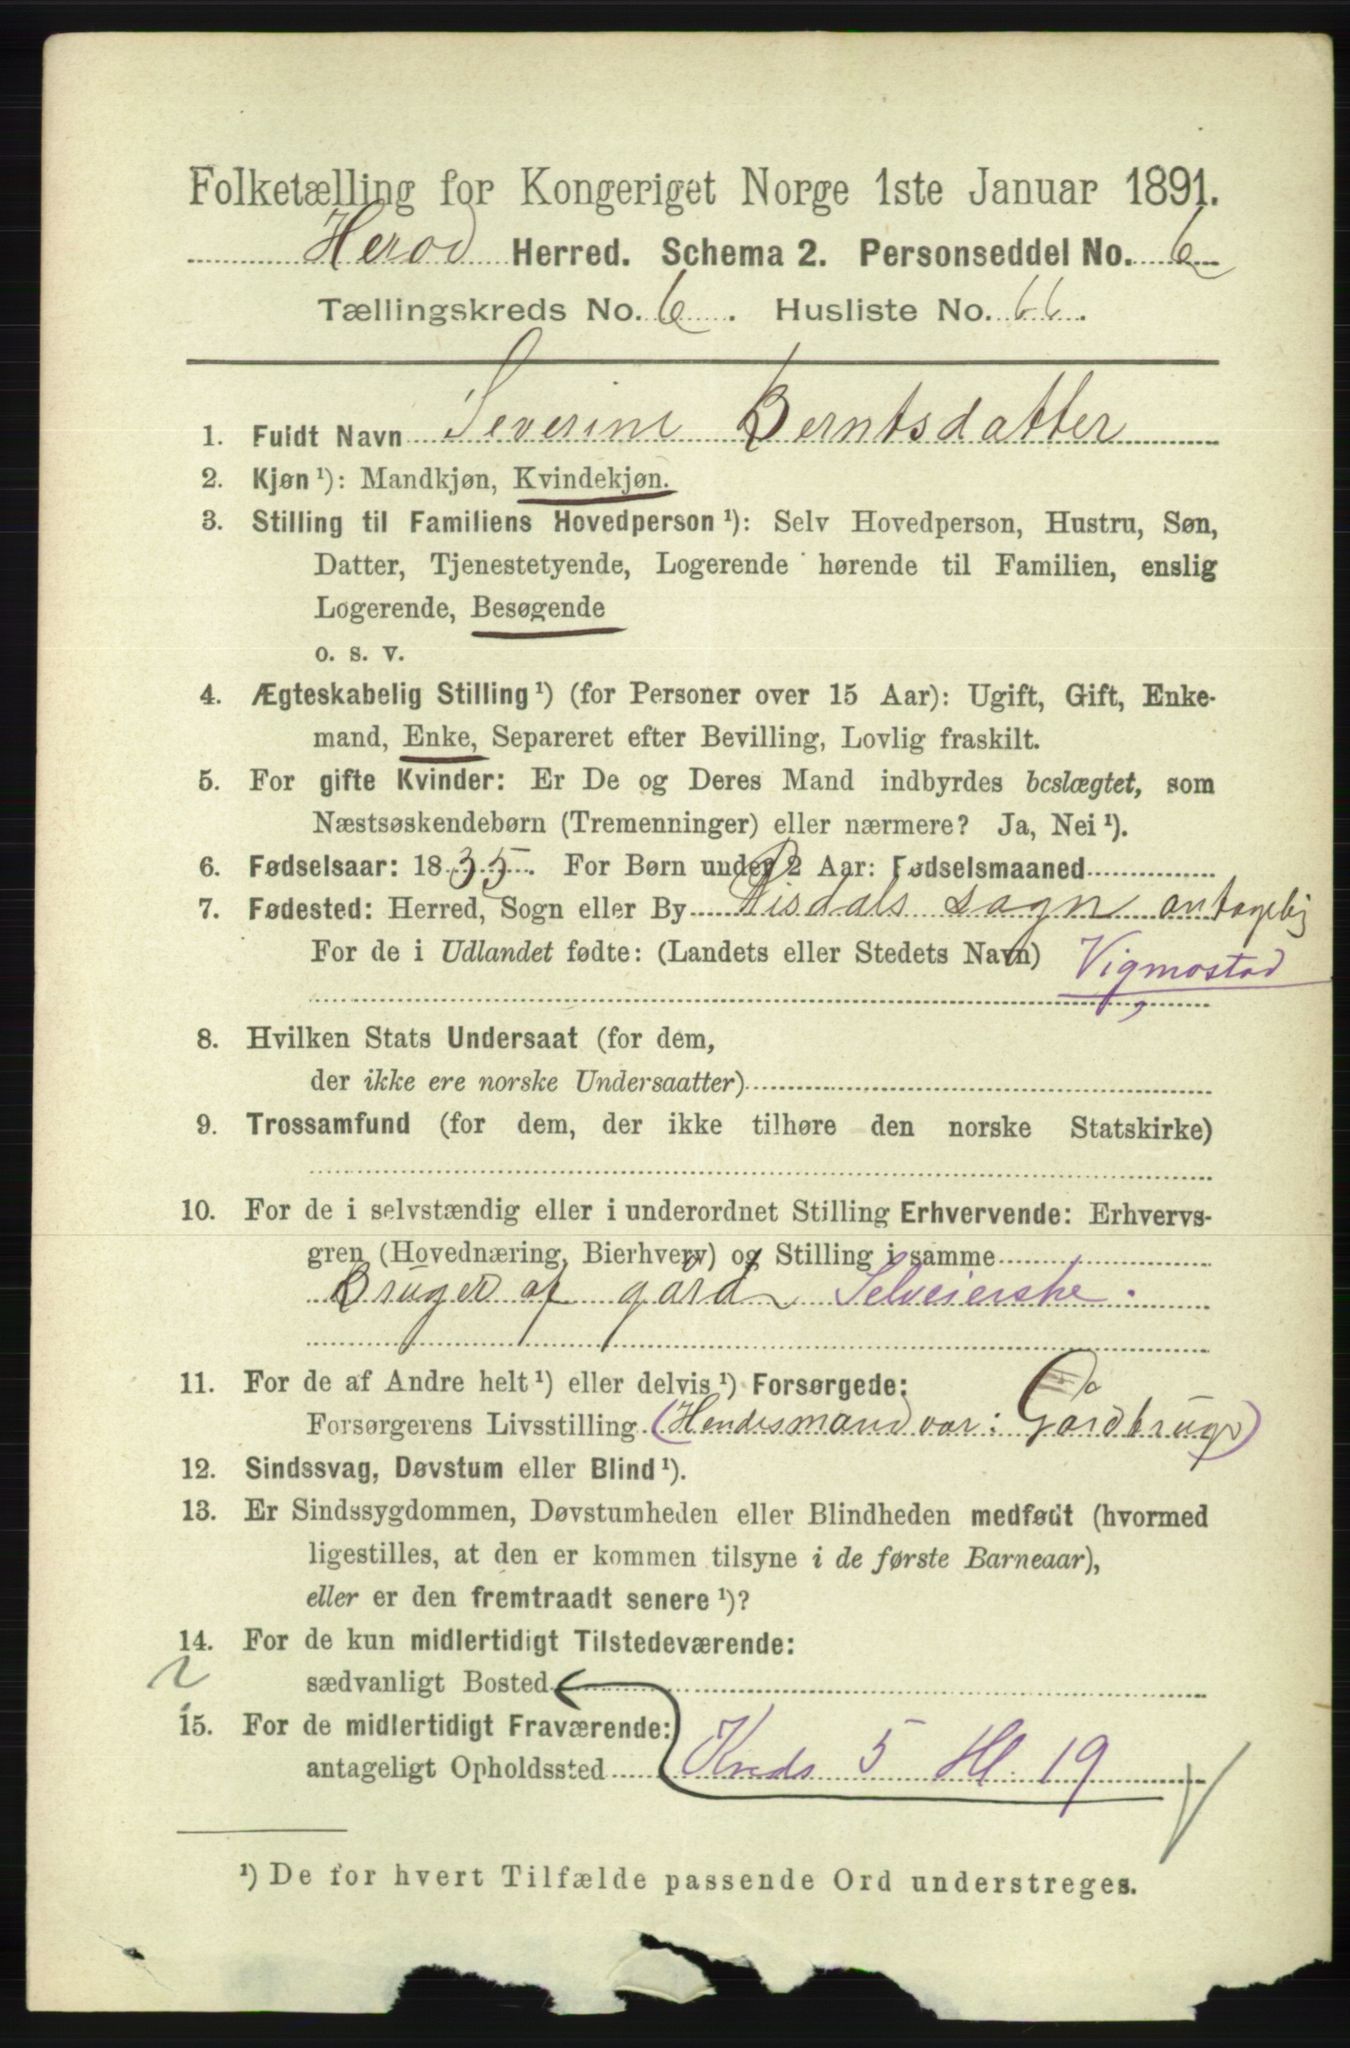 Folketælling for Kongeriget Norge 1ste Januar 1891.
Herod Herred. Schema 2. Personseddel No. 6
Tællingskreds No. 6. Husliste No. 66.
1. Fuldt Navn Severine Berntsdatter
2. Kjøn ¹): Mandkjøn, Kvindekjøn.
3. Stilling til Familiens Hovedperson ¹): Selv Hovedperson, Hustru, Søn,
Datter, Tjenestetyende, Logerende hørende til Familien, enslig
Logerende, Besøgende
o. s. v.
4. Ægteskabelig Stilling ¹) (for Personer over 15 Aar): Ugift, Gift, Enke-
mand, Enke, Separeret efter Bevilling, Lovlig fraskilt.
5. For gifte Kvinder: Er De og Deres Mand indbyrdes beslægtet, som
Næstsøskendebørn (Tremenninger) eller nærmere? Ja, Nei ¹).
6. Fødselsaar: 1835. For Børn under 2 Aar: Fødselsmaaned
7. Fødested: Herred, Sogn eller By Risdals sogn antagelig
For de i Udlandet fødte: (Landets eller Stedets Navn) Vigmostad
8. Hvilken Stats Undersaat (for dem,
der ikke ere norske Undersaatter)
9. Trossamfund (for dem, der ikke tilhøre den norske Statskirke)
10. For de i selvstændig eller i underordnet Stilling Erhvervende: Erhvervs-
gren (Hovednæring, Bierhverv) og Stilling i samme
Bruger af gård Selveierske.
11. For de af Andre helt ¹) eller delvis ¹) Forsørgede:
Forsørgerens Livsstilling (Hendes mand var: Gårdbruger)
12. Sindssvag, Døvstum eller Blind ¹).
13. Er Sindssygdommen, Døvstumheden eller Blindheden medfødt (hvormed
ligestilles, at den er kommen tilsyne i de første Barneaar),
eller er den fremtraadt senere ¹)?
14. For de kun midlertidigt Tilstedeværende:
sædvanligt Bosted
15. For de midlertidigt Fraværende:
antageligt Opholdssted Kreds 5 Hl. 19
¹) De for hvert Tilfælde passende Ord understreges.